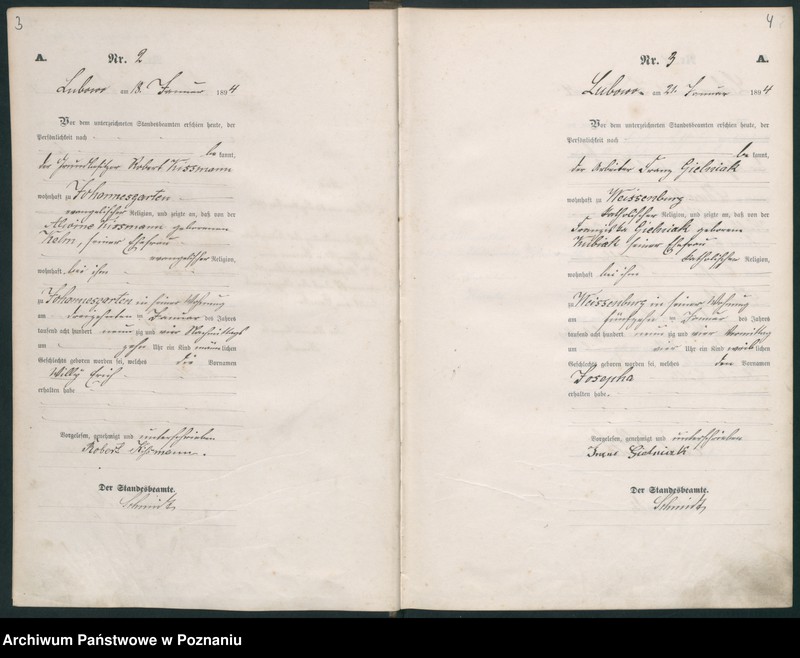 3
A.
Nr. 2
Lubowo am 18. Januar 1894
Vor dem unterzeichneten Standesbeamten erschien heute, der
Persönlichkeit nach
be kannt,
der Grundbesitzer Robert Kissmann
wohnhaft zu Johannesgarten
evangelischer Religion, und zeigte an, daß von der
Kissmann geborenen
Kelm, seiner Ehefrau
evangelischer Religion,
wohnhaft bei ihm
zu Johannesgarten in seiner Wohnung
am dreizehnten Januar des Jahres
tausend acht hundert neun zig und vier Nachmittags
um zehn Uhr ein Kind männ lichen
Geschlechts geboren worden sei, welches die Vornamen
Willy Erich
erhalten habe
Vorgelesen, genehmigt und unterschrieben
Robert Kißmann.
Der Standesbeamte.
Schmidt
4
Nr. 3
A.
Lubowo am 21. Januar 1894
Vor dem unterzeichneten Standesbeamten erschien heute, der
Persönlichkeit nach
be kannt,
der Arbeiter Franz Gielniak
wohnhaft zu Weissenburg
katholischer Religion, und zeigte an, daß von der
Franziska Gielniak geborenen
Kubiak seiner Ehefrau
katholischer Religion,
wohnhaft bei ihm
zu Weissenburg in seiner Wohnung
am fünfzehn Januar des Jahres
tausend acht hundert neun zig und vier Vormittag
um vier Uhr ein Kind weib lichen
Geschlechts geboren worden sei, welches den Vornamen
Josepha
erhalten habe.
Vorgelesen, genehmigt und unterschrieben
Gielniak
Der Standesbeamte.
Schmidt
Archiwum Państwowe w Poznaniu